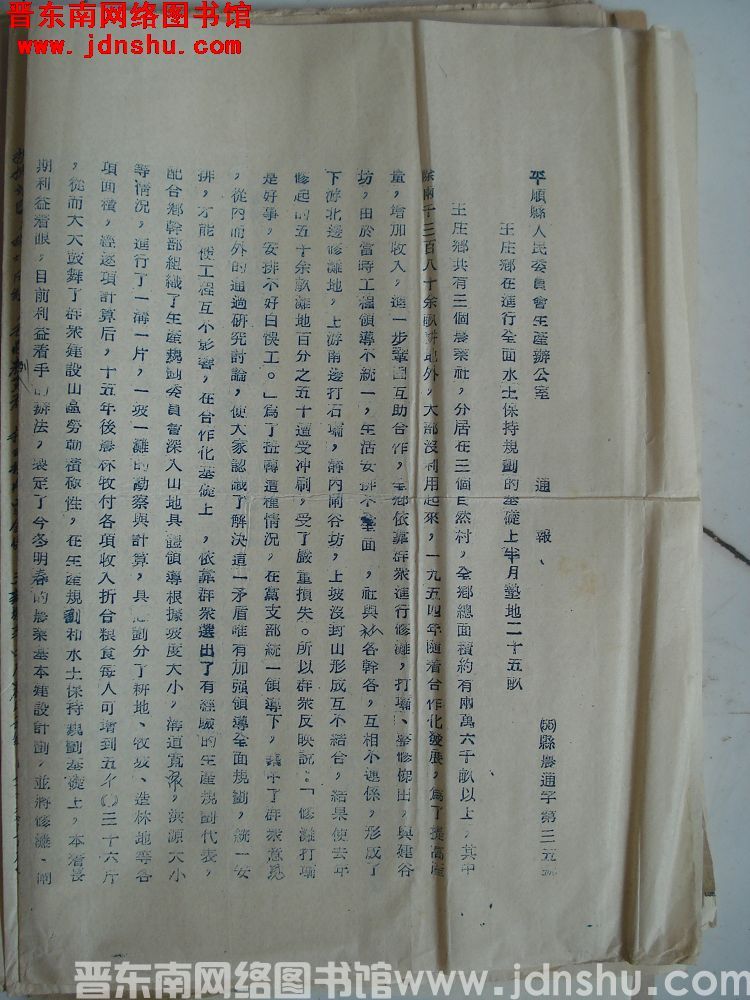 晋东南网络图书馆
www.jdnshu.com
平順縣人民委員會生產辦公室 通報 (55)縣農通字第三五號
王庄鄉在進行全面水土保持規劃的基礎上半月墊地二十五畝
王庄鄉共有三個農業社，分居在三個自然村，全鄉總面積約有兩萬六千畝以上，其中
除兩千三百八十余畝耕地外，大部沒利用起來，一九五四年隨着合作化發展，爲了提高產
量，增加收入，進一步鞏固互助合作，全鄉依靠群衆進行修灘，打壩、壘修梯田，與建谷
坊，由於當時工程領導不統一，生活安排不全面，社與社各幹各，互相不連係，形成了
下游北邊修灘地，上游南邊打石壩，溝內閘谷坊，上坡沒封山形成互不結合，結果使去年
修起的五十余畝灘地百分之五十遭受冲刷，受了嚴重損失。所以群衆反映說：「修灘打壩
是好事，安排不好白悞工。」爲了扭轉這種情况，在黨支部統一領導下，集中了群衆意見
，從內而外的通過研究討論，使大家認識了解決這一矛盾唯有加强領導全面規劃，統一安
排，才能使工程互不影響，在合作化基礎上，依靠群衆選出了有經驗的生產規劃代表，
配合鄉幹部組織了生產規劃委員會深入山地具體領導根據坡度大小，溝道寬窄，洪源大小
等情况，進行了一溝一片，一坡一灘的勘察與計算，具体劃分了耕地、牧坡、造林地等各
項面積，經逐項計算后，十五年後農林牧付各項收入折合粮食每人可增到五个〇三十六斤
，從而大大鼓舞了群衆建設山區勞動積極性，在生產規劃和水土保持規劃基礎上，本着長
期利益着眼，目前利益着手的辦法，製定了今冬明春的農業基本建設計劃，並將修灘、閘
晋东南网络图书馆www.jdnshu.com